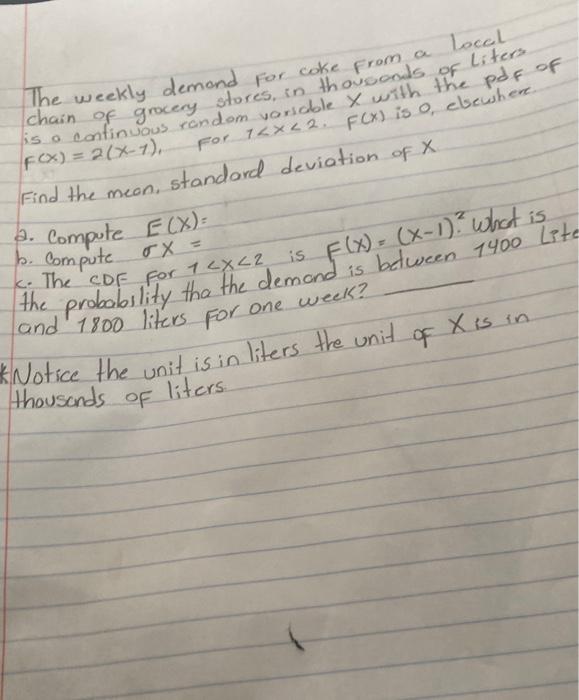 The weekly demand For coke From a local
chain of grocery stores, in thousands of liters
is a continuous random variable X with the pdf of
F(x) = 2(x-1), For 1<x<2. F(x) is 0, elsewhere.
Find the mean, standard deviation of X
a. Compute E(X)=
b. Compute σX =
c. The CDF For 1<x<2 is F(x) = (x-1)². What is
the probability tha the demand is between 1400 Lite
and 1800 liters For one week?
*Notice the unit is in liters the unit of X is in
thousands of liters